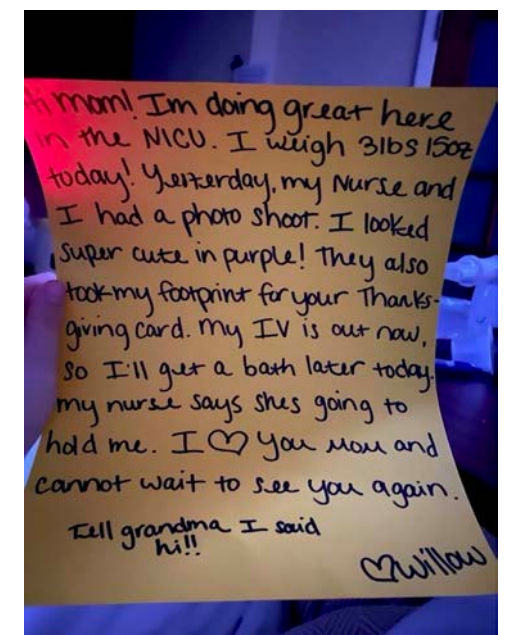 Hi mom! Im doing great here
in the NICU. I weigh 3lbs 15oz
today! Yesterday, my Nurse and
I had a photo shoot. I looked
super cute in purple! They also
took my footprint for your Thanks-
giving card. My IV is out now,
so I'll get a bath later today.
my nurse says shes going to
hold me. I ♡ you Mom and
cannot wait to see you again.
Tell grandma I said
hi!!
♡Willow